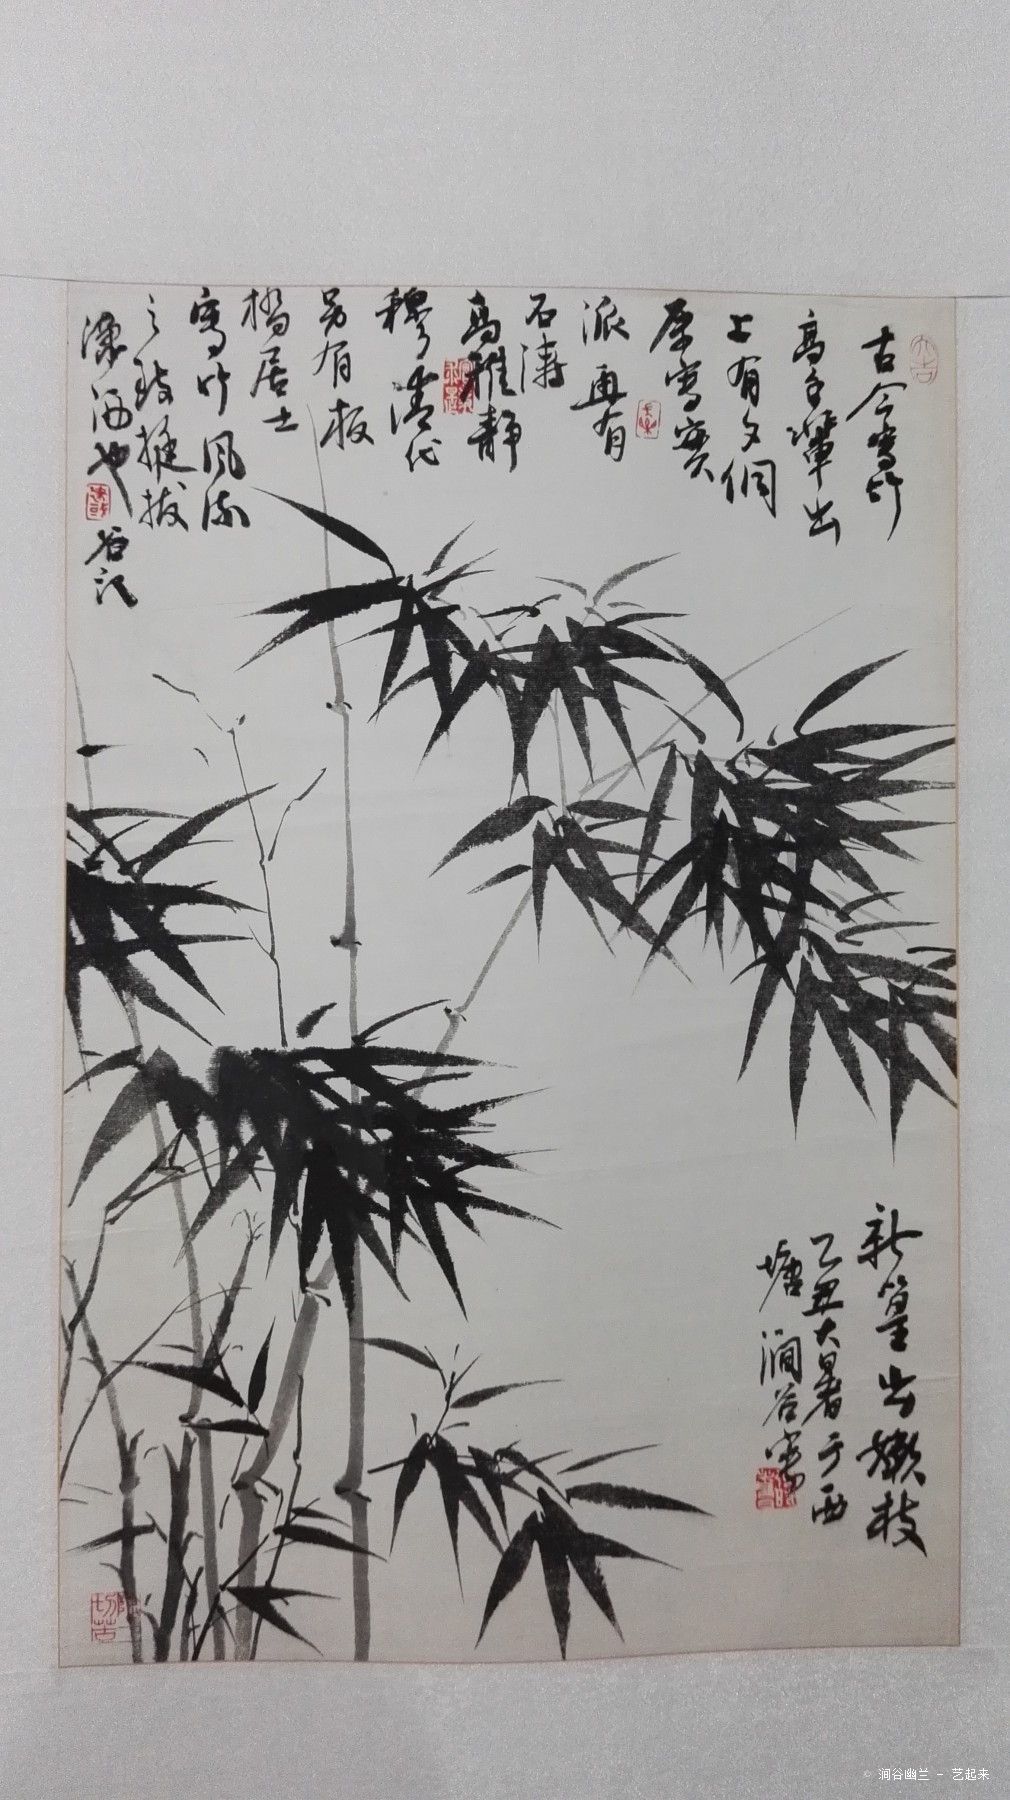 古今写竹
高手辈出
上有文倜
原写实
派 再有
石涛
高雅静
穆 清代
另有板
橋居士
写竹 风流
之致挺拔
潇洒也
谷江
新篁出嫩枝
乙丑大暑于西
塘 涧谷写
大吉
© 涧谷幽兰 - 艺起来